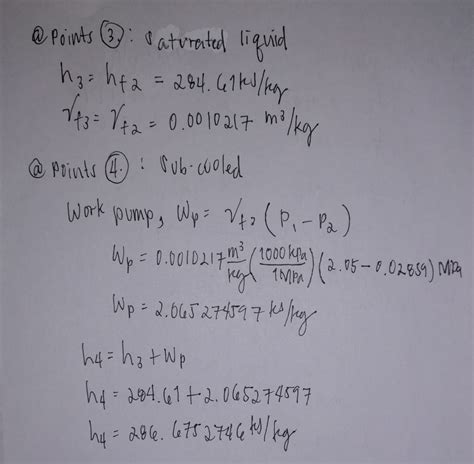 @ Points ③: Saturated liquid
h3 = hf2 = 284.61 kJ/kg
Vf3 = Vf2 = 0.0010217 m³/kg
@ Points ④: Sub-cooled
Work pump, Wp = Vf3 (P1 - P2)
Wp = 0.0010217 m³/kg (1000 kPa / 1 MPa) (2.05 - 0.02859) MPa
Wp = 2.065274597 kJ/kg
h4 = h3 + Wp
h4 = 284.61 + 2.065274597
h4 = 286.6752746 kJ/kg